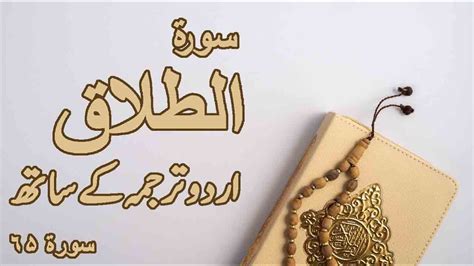 سورۃ
الطلاق
اردو ترجمہ کے ساتھ
سورۃ ۶۵